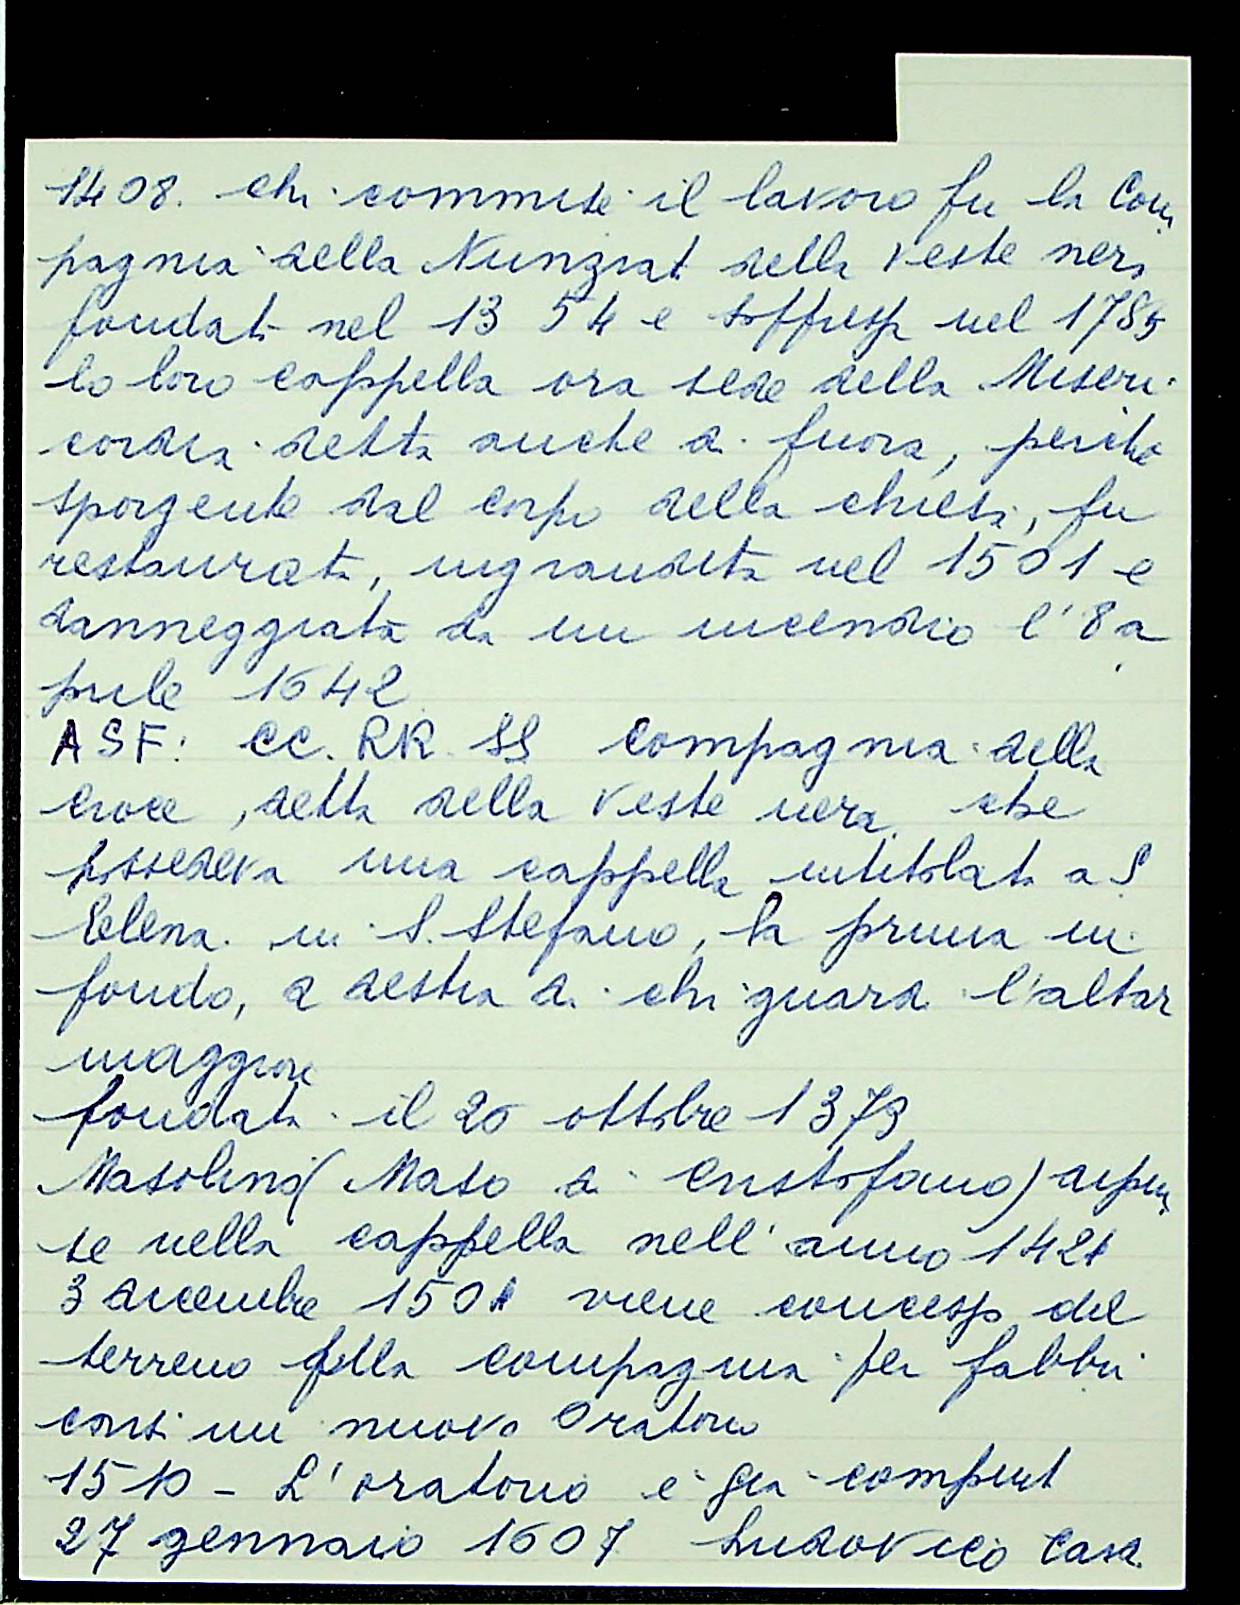 1408. chi commise il lavoro fu la Com
pagnia della Nunziat della veste nera
fondata nel 1354 e soppresp nel 1785
la loro cappella ora sede della Miseri
cordia detta anche di fuora, perche
sporgente dal corpo della chiesa, fu
restaurata, ingrandita nel 1501 e
danneggiata da un incendio l'8 a
prile 1642
ASF: CC. RR. SS Compagnia della
Croce, detta della Veste nera, che
possedeva una cappella intitolata a S
Elena in S. Stefano, la prima in
fondo, a destra di chi guarda l'altar
maggiore
fondata il 20 ottobre 1373
Masolino (Maso di Cristofano) dipin
se nella cappella nell'anno 1424
3 dicembre 1501 viene concesso del
terreno alla compagnia per fabbri
carsi un nuovo Oratorio
1510 - L'oratorio è già compiut
27 gennaio 1607 Ludovico Card.